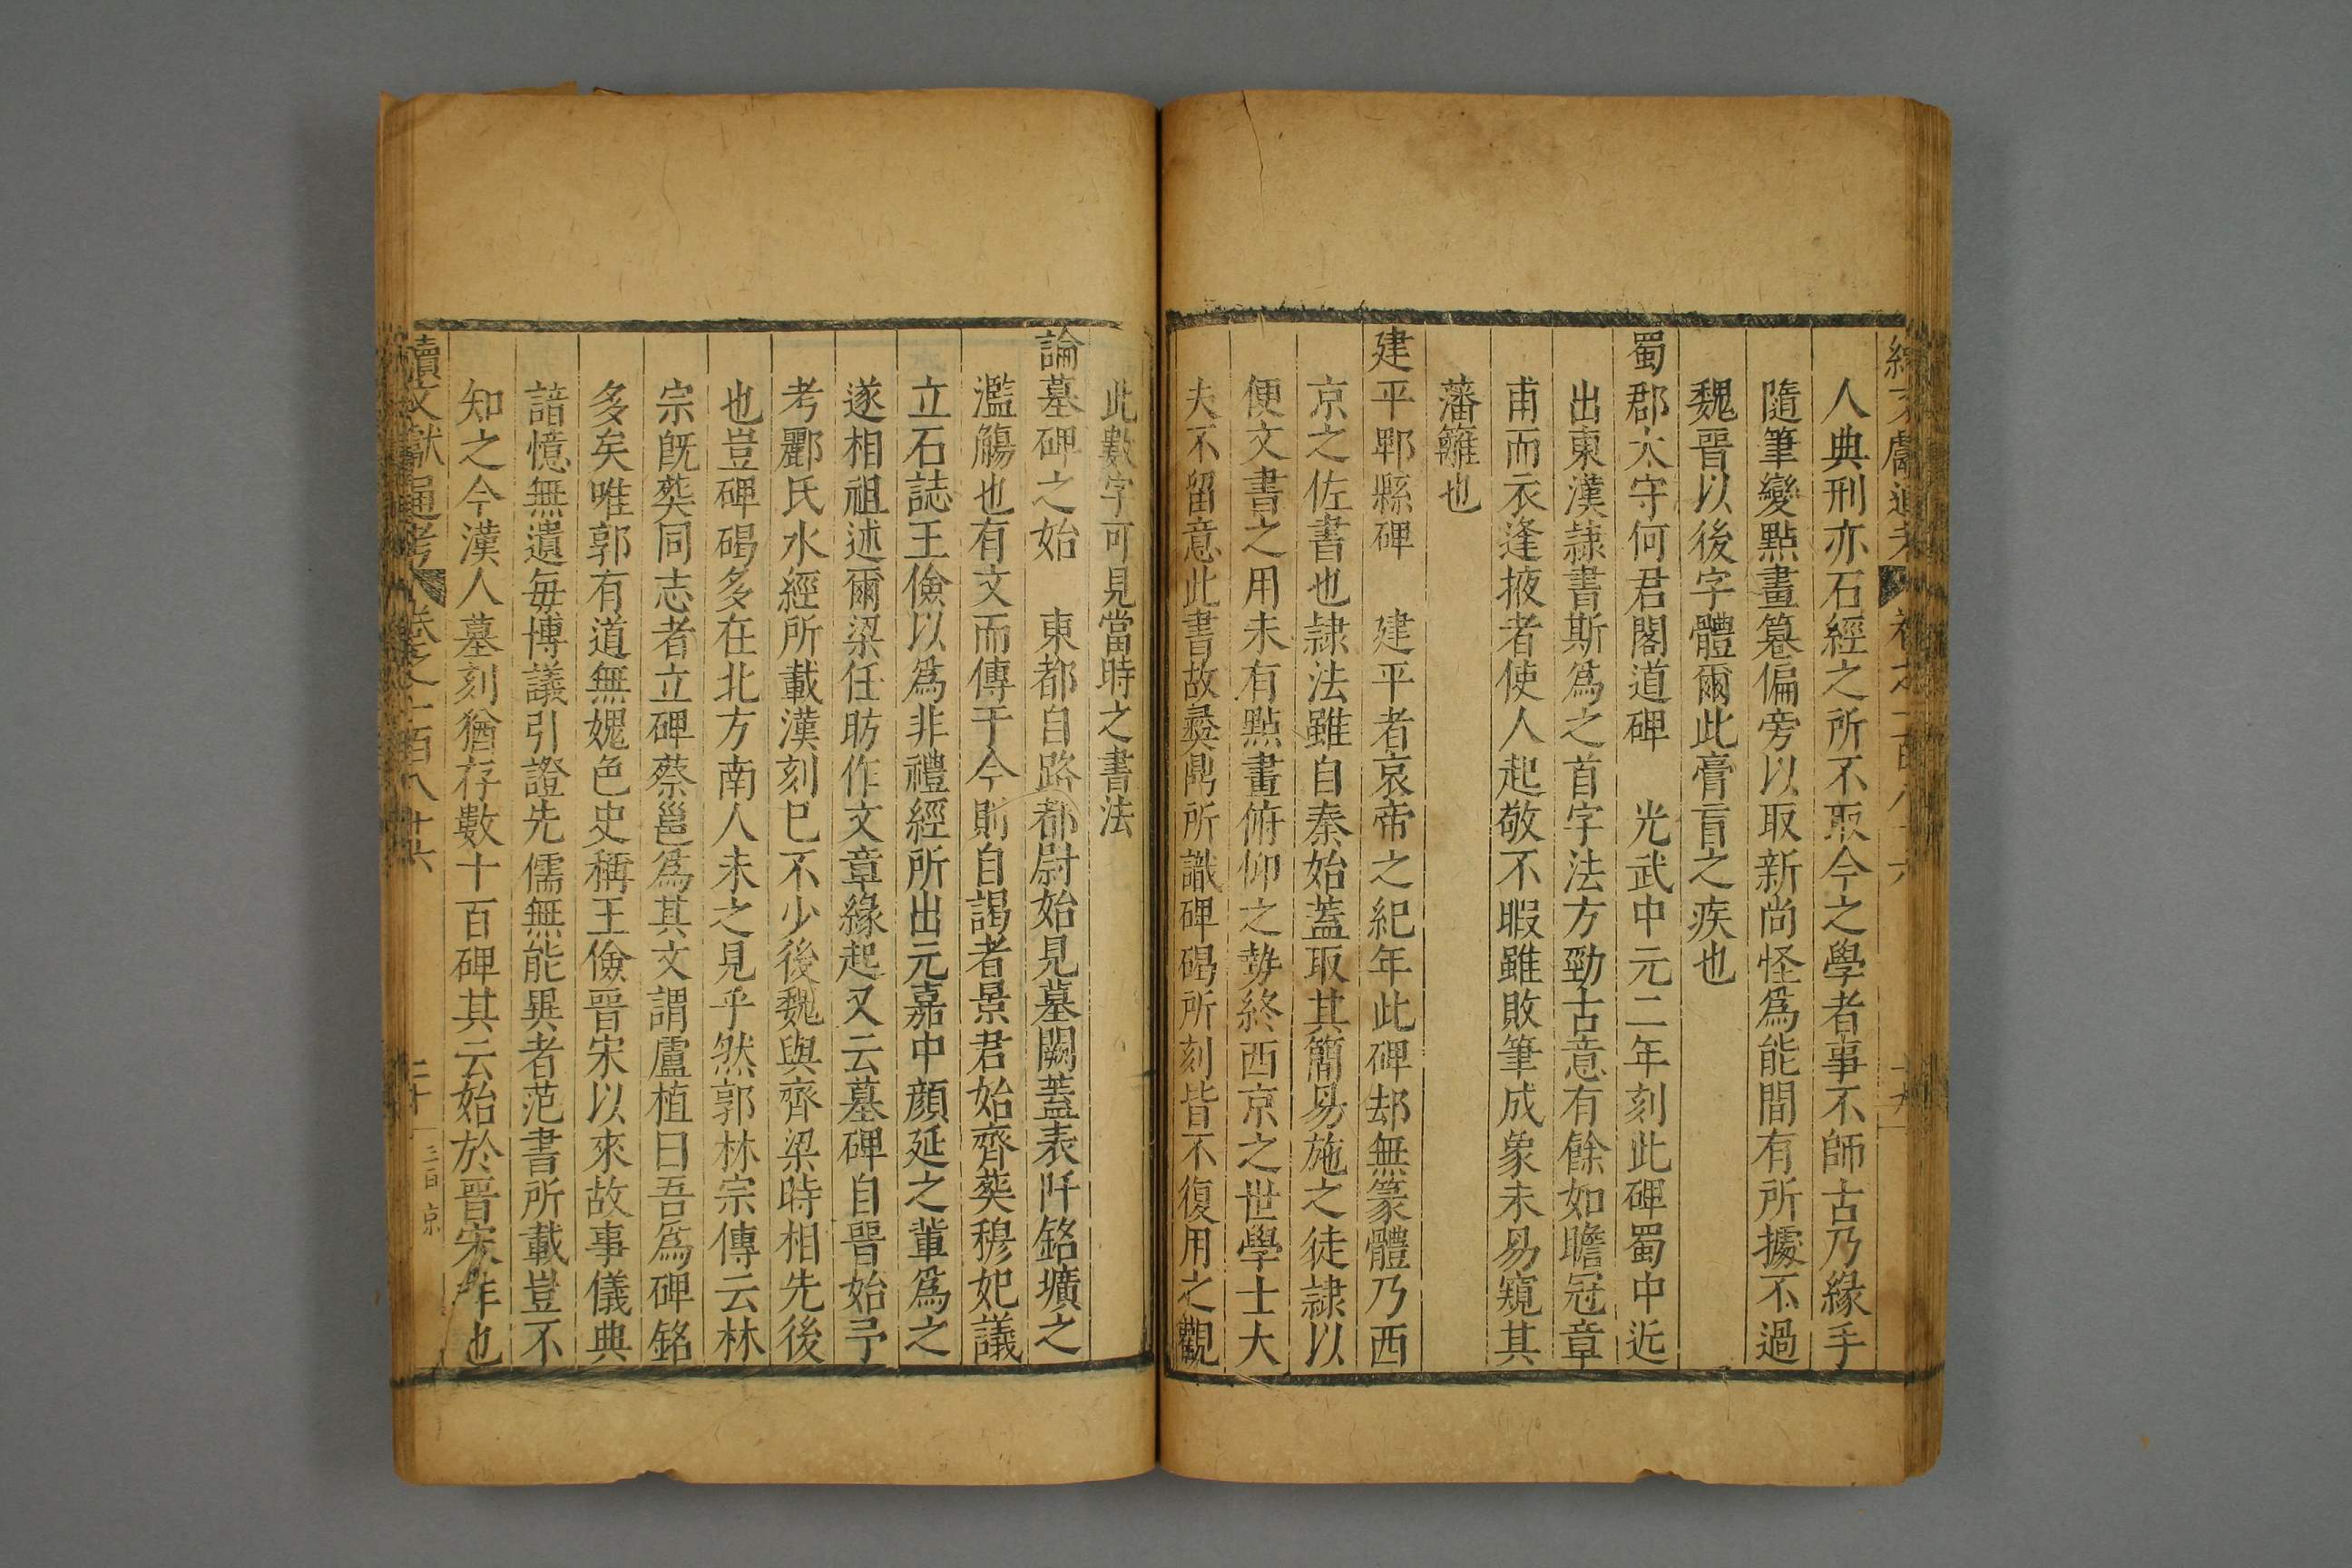 人典刑亦石經之所不取今之學者事不師古乃緣手
隨筆變點畫篹偏旁以取新尚怪爲能間有所據不過
魏晉以後字體爾此膏肓之疾也
蜀郡太守何君閣道碑　光武中元二年刻此碑蜀中近
出東漢隷書斯爲之首字法方勁古意有餘如瞻冠章
甫而衣逢掖者使人起敬不暇雖敗筆成象未易窺其
藩籬也
建平郫縣碑　建平者哀帝之紀年此碑却無篆體乃西
京之佐書也隷法雖自秦始蓋取其簡易施之徒隷以
便文書之用未有點畫俯仰之勢終西京之世學士大
夫不留意此書故彞鼎所識碑碣所刻皆不復用之觀
此數字可見當時之書法
論墓碑之始　東都自路都尉始見墓闕蓋表阡銘壙之
濫觴也有文而傳于今則自謁者景君始齊葬穆妃議
立石誌王儉以爲非禮經所出元嘉中顔延之輩爲之
遂相祖述爾梁任昉作文章緣起又云墓碑自晉始予
考酈氏水經所載漢刻巳不少後魏與齊梁時相先後
也豈碑碣多在北方南人未之見乎然郭林宗傳云林
宗旣葬同志者立碑蔡邕爲其文謂盧植曰吾爲碑銘
多矣唯郭有道無媿色史稱王儉晉宋以來故事儀典
諳憶無遺毎博議引證先儒無能異者范書所載豈不
知之今漢人墓刻猶存數十百碑其云始於晉宋非也
續文獻通考　卷之一百八十六　二十　三百　京